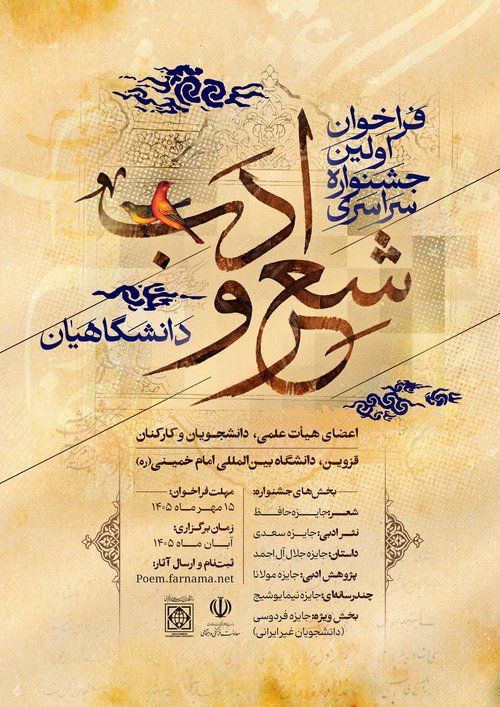 فراخوان
اولین
جشنواره
سراسری
شعر و ادب
دانشگاهیان
اعضای هیأت علمی، دانشجویان و کارکنان
قزوین، دانشگاه بین‌المللی امام خمینی (ره)
بخش‌های جشنواره:
شعر: جایزه حافظ
نثر ادبی: جایزه سعدی
داستان: جایزه جلال آل احمد
پژوهش ادبی: جایزه مولانا
چندرسانه‌ای: جایزه نیما یوشیج
بخش ویژه: جایزه فردوسی
(دانشجویان غیر ایرانی)
مهلت فراخوان:
۱۵ مهر ماه ۱۴۰۵
زمان برگزاری:
آبان ماه ۱۴۰۵
ثبت‌نام و ارسال آثار:
Poem.farnama.net